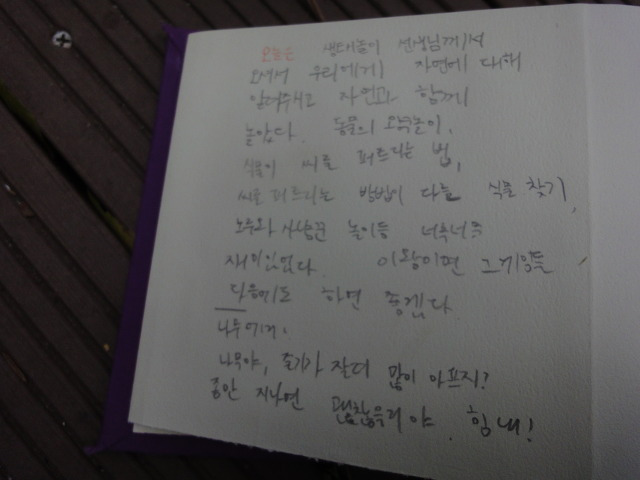 오늘은 생태놀이 선생님께서
오셔서 우리에게 자연에 대해
알려주시고 자연과 함께
놀았다. 동물의
식물이 씨를 퍼트리는 법,
씨를 퍼트리는 방법이 다른 식물 찾기,
노루와 사냥꾼 놀이등 너무너무
재미있었다. 이왕이면 그 게임들
다음에도 하면 좋겠다.
나무에게.
나무야, 줄기가 잘려 많이 아프지?
지나면 괜찮을거야. 힘내!